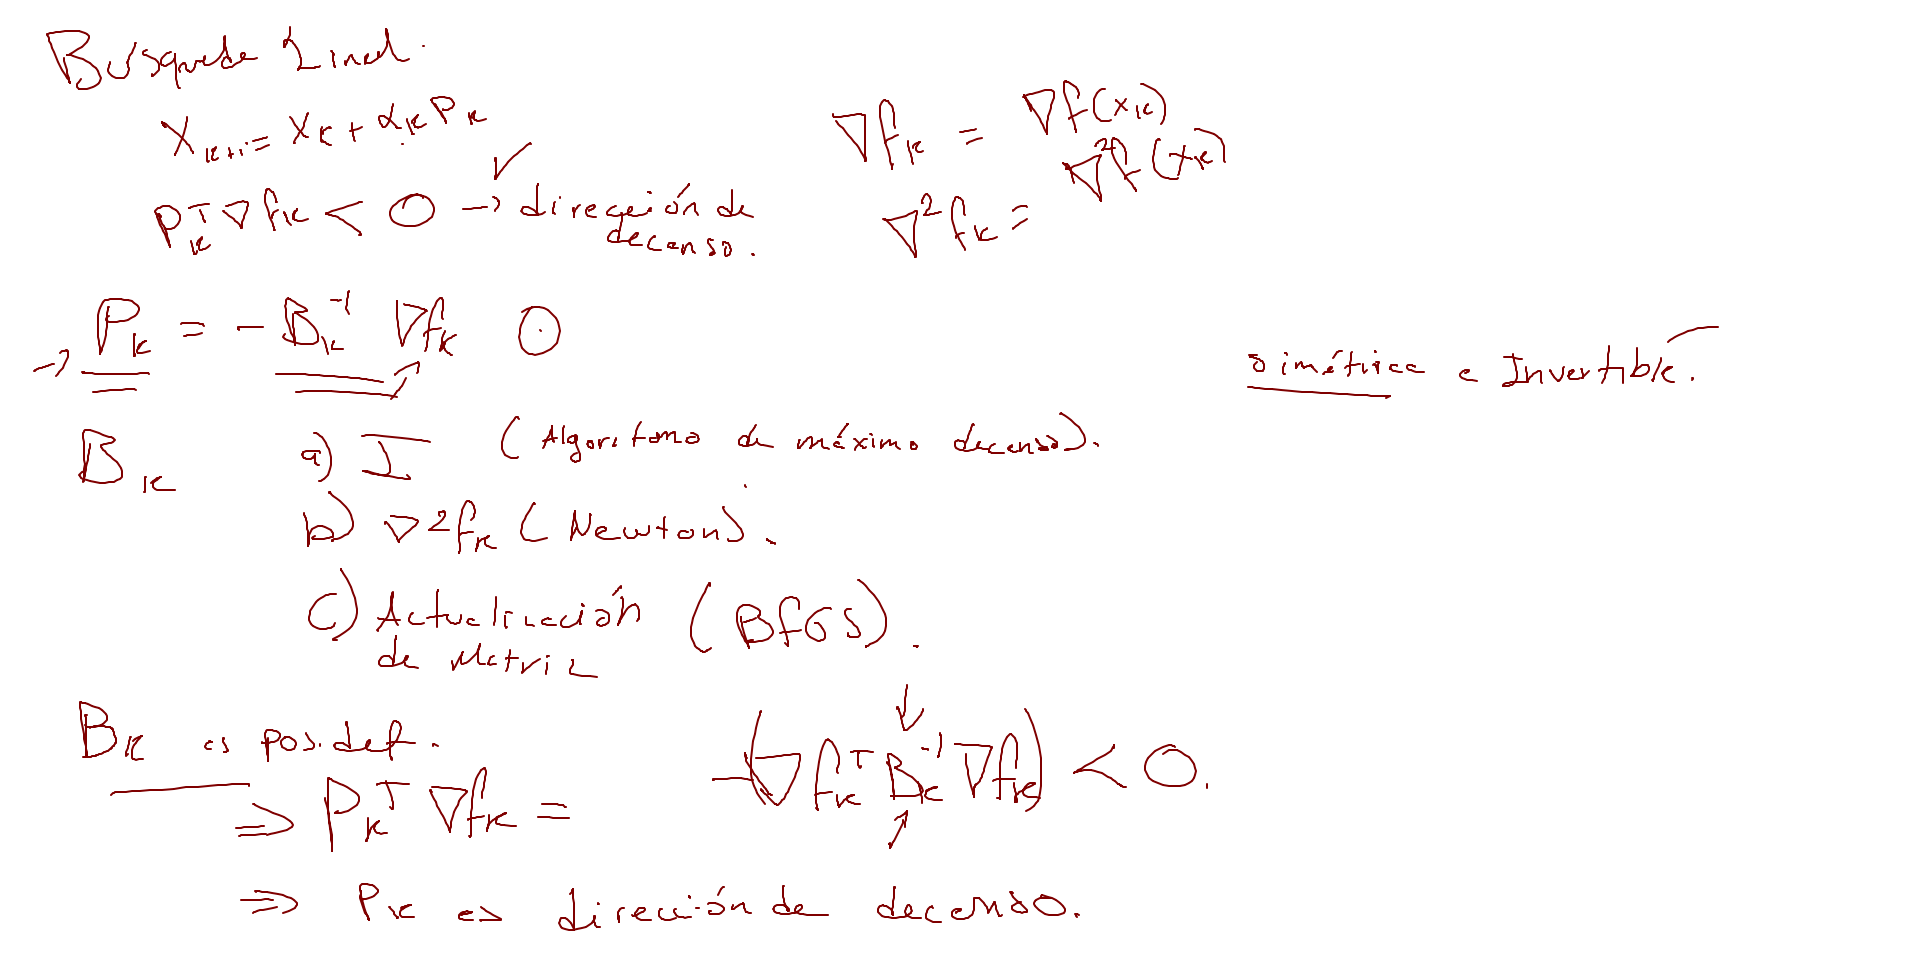 Búsqueda Lineal.
X_{k+1} = X_k + α_k P_k
∇f_k = ∇f(x_k)
P_k^T ∇f_k < 0 → dirección de decenso. ✓
∇²f_k = ∇²f(x_k)
→ P_k = - B_k^{-1} ∇f_k ⊙
simétrica e Invertible.
B_k a) I (Algoritmo de máximo decenso).
b) ∇²f_k (Newton).
c) Actualización (BFGS).
de Matriz
B_k es pos. def.
⇒ P_k^T ∇f_k = -(∇f_k^T B_k^{-1} ∇f_k) < 0.
⇒ P_k es dirección de decenso.